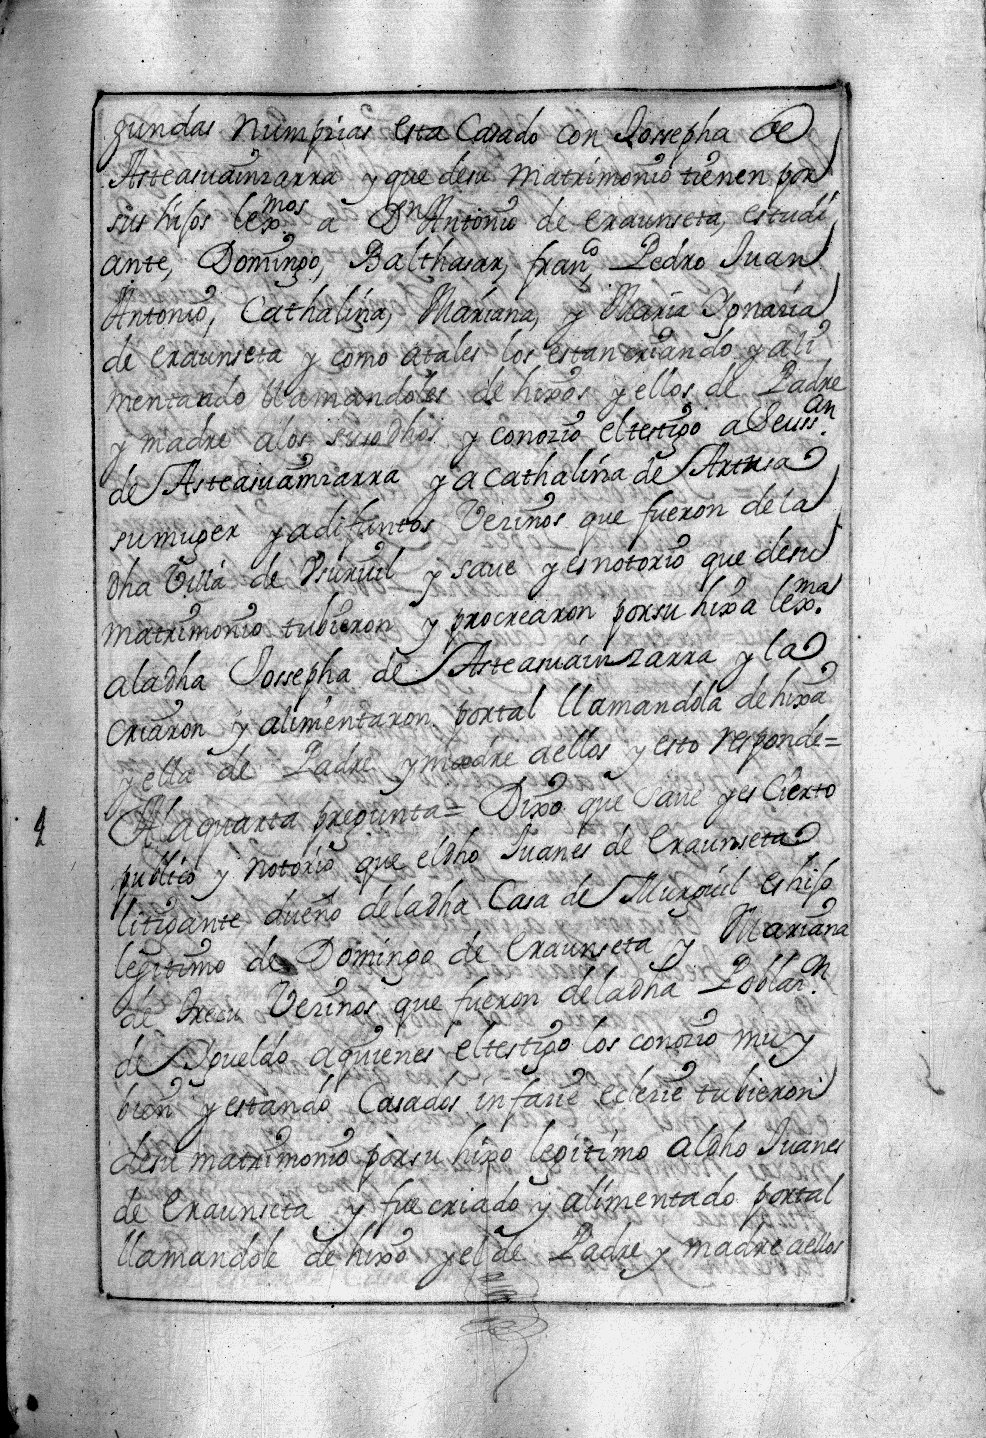 gundas numpzias esta Casado con Jossepha de
Asteasuainzarra y que desu matrimonio tienen por
sus hijos lex.mos a Dn Antonio de eraunseta, estudi
ante, Domingo, Balthasar, franco, Pedro Juan
Antonio, Cathalina, Mariana, y Maria Ygnazia
de eraunseta y como atales los estan criando y ali
mentando llamandoles de hixos y ellos de Padre
y madre alos susodhos y conozio eltestigo a Seuss.an
de Asteasuainzarra y a cathalina de Artusa
sumuger yadifuntos Vezinos que fueron dela
dha Villa de Usuruil y saue yesnotorio que desu
matrimonio tubieron y procrearon porsu hixa lex.ma
aladha Jossepha de Asteasuainzarra y la
criaron y alimentaron portal llamandola de hixa
y ella de Padre y madre aellos y esto responde=
4 Alaquarta pregunta= Dixo que saue yes Cierto
publico y notorio que eldho Juanes de Eraunseta
litigante dueño deladha Casa de Murguil eshijo
legitimo de Domingo de Eraunseta y Mariana
de Yrecu Vezinos que fueron deladha Poblaz.on
de Ygueldo aquienes eltestigo los conozio muy
bien y estando Casados infazie eclezie tubieron
desu matrimonio porsu hixo legitimo aldho Juanes
de Eraunseta y fue criado y alimentado portal
llamandole de hixo y el de Padre y madre aellos